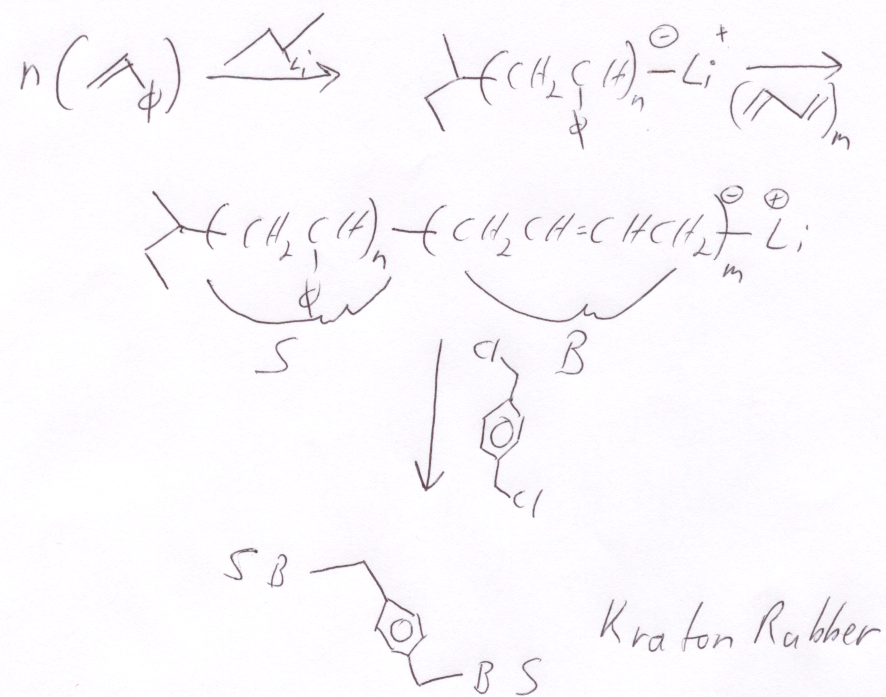 n ( ϕ ) Li
( CH₂ C H )ₙ – Li ⊖ +
ϕ
( )ₘ
( CH₂ C H )ₙ – ( CH₂ CH = CHCH₂ )ₘ – Li ⊖ ⊕
ϕ
S B
Cl
Cl
S B
B S
Kraton Rubber